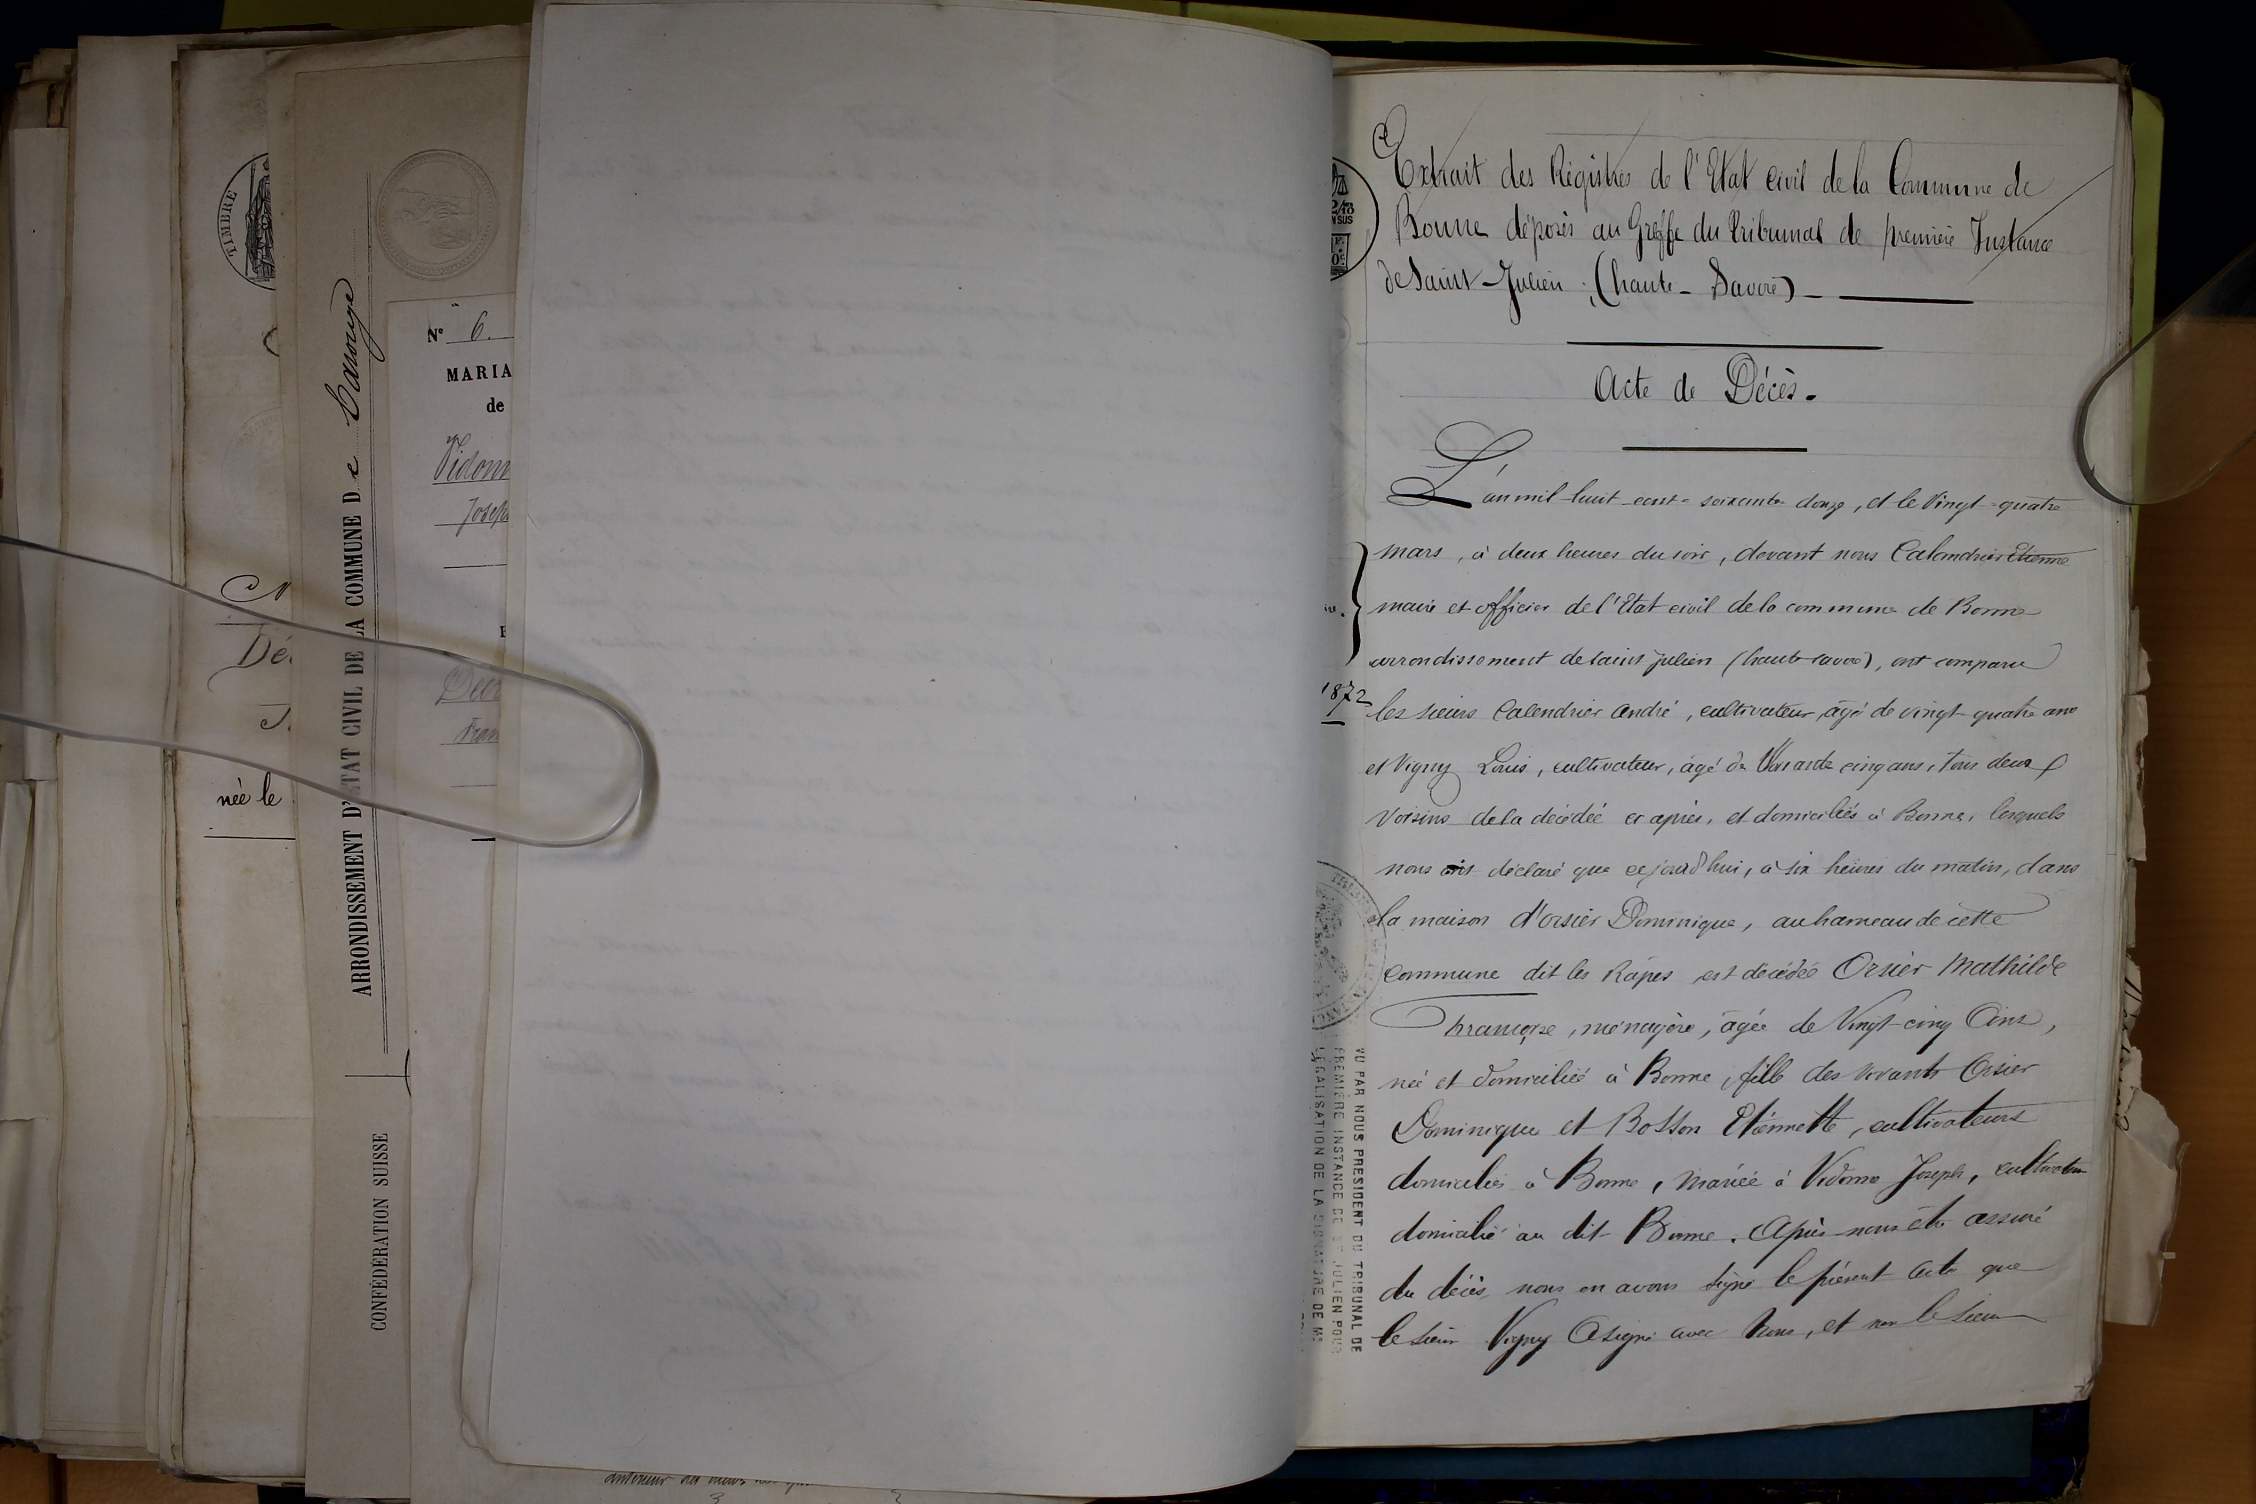 TIMBRE
née le
ARRONDISSEMENT D'ÉTAT CIVIL DE LA COMMUNE De Carouge
CONFÉDÉRATION SUISSE
N° 6.
MARIA
de
Vidonn
Josep
Extrait des Régistres de l'Etat civil de la Commune de
Bonne déposés au Greffe du Tribunal de première Instance
de Saint-Julien, (haute-Savoie)
Acte de Décès.
L'an mil huit cent soixante douze, et le Vingt-quatre
mars, à deux heures du soir, devant nous Calendrier Etienne
maire et officier de l'Etat civil de la commune de Bonne
arrondissement de saint julien (haute savoie), ont comparu
1872
les sieurs Calendrier André, cultivateur, âgé de vingt quatre ans
et Vigny Louis, cultivateur, âgé de cinq ans, tous deux
Voisins de la décédée ci après, et domiciliés à Bonne, lesquels
nous ont déclaré que cejourd'hui, à six heures du matin, dans
la maison d'orsier Dominique, au hameau de cette
Commune dit les Râpes est décédée Orsier Mathilde
françoise, ménagère, âgée de Vingt-cinq Ans,
née et domiciliée à Bonne, fille des vivants Orsier
Dominique et Bosson Etiennette, cultivateurs
domiciliés à Bonne, mariée à Vidonne Joseph, cultivateur
domicilié au dit Bonne. Après nous être assuré
du décès, nous en avons signé le présent acte que
le sieur Vigny a signé avec Nous, et non le sieur
VU PAR NOUS PRESIDENT DU TRIBUNAL DE
PREMIÈRE INSTANCE DE ST JULIEN POUR
LÉGALISATION DE LA SIGNATURE DE Mr